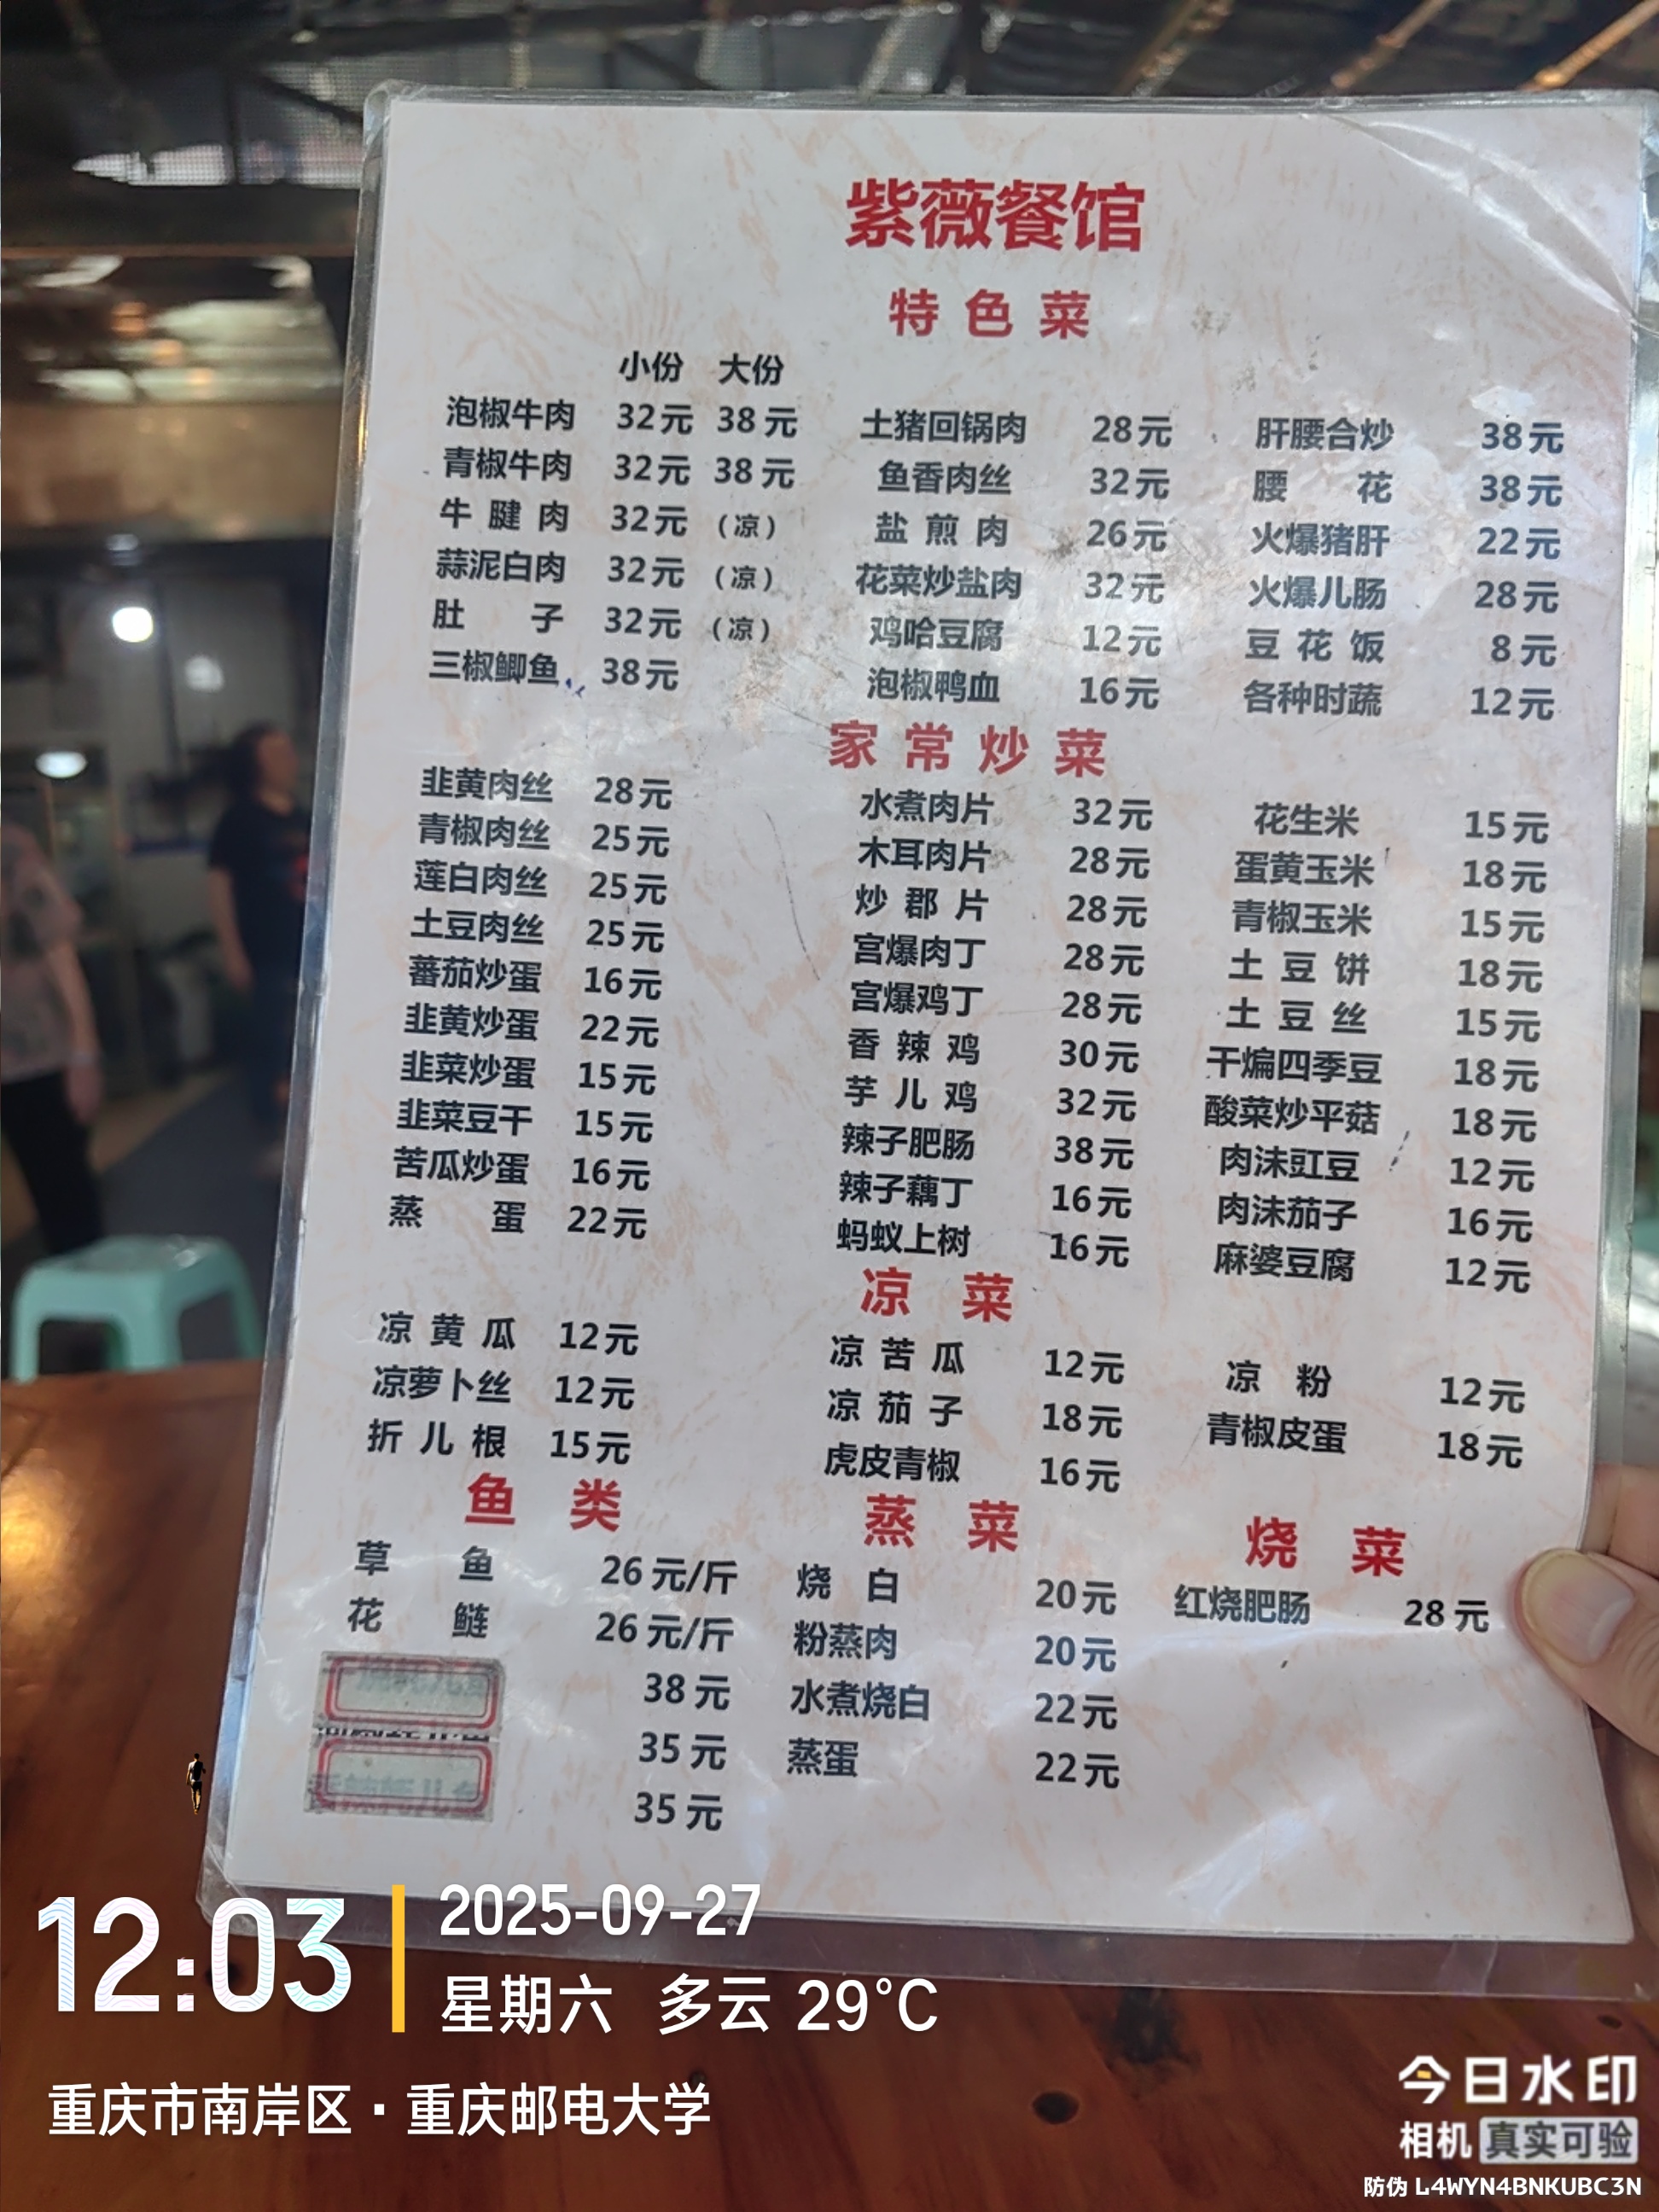 紫薇餐馆
特色菜
小份 大份
泡椒牛肉 32元 38元 土猪回锅肉 28元 肝腰合炒 38元
青椒牛肉 32元 38元 鱼香肉丝 32元 腰花 38元
牛腱肉 32元 (凉) 盐煎肉 26元 火爆猪肝 22元
蒜泥白肉 32元 (凉) 花菜炒盐肉 32元 火爆儿肠 28元
肚子 32元 (凉) 鸡哈豆腐 12元 豆花饭 8元
三椒鲫鱼 38元 泡椒鸭血 16元 各种时蔬 12元
家常炒菜
韭黄肉丝 28元 水煮肉片 32元 花生米 15元
青椒肉丝 25元 木耳肉片 28元 蛋黄玉米 18元
莲白肉丝 25元 炒郡片 28元 青椒玉米 15元
土豆肉丝 25元 宫爆肉丁 28元 土豆饼 18元
蕃茄炒蛋 16元 宫爆鸡丁 28元 土豆丝 15元
韭黄炒蛋 22元 香辣鸡 30元 干煸四季豆 18元
韭菜炒蛋 15元 芋儿鸡 32元 酸菜炒平菇 18元
韭菜豆干 15元 辣子肥肠 38元 肉沫豇豆 12元
苦瓜炒蛋 16元 辣子藕丁 16元 肉沫茄子 16元
蒸蛋 22元 蚂蚁上树 16元 麻婆豆腐 12元
凉菜
凉黄瓜 12元 凉苦瓜 12元 凉粉 12元
凉萝卜丝 12元 凉茄子 18元 青椒皮蛋 18元
折儿根 15元 虎皮青椒 16元
鱼类 蒸菜 烧菜
草鱼 26元/斤 烧白 20元 红烧肥肠 28元
花鲢 26元/斤 粉蒸肉 20元
38元 水煮烧白 22元
35元 蒸蛋 22元
35元
12:03
2025-09-27
星期六 多云 29°C
重庆市南岸区·重庆邮电大学
今日水印
相机 真实可验
防伪 L4WYN4BNKUBC3N